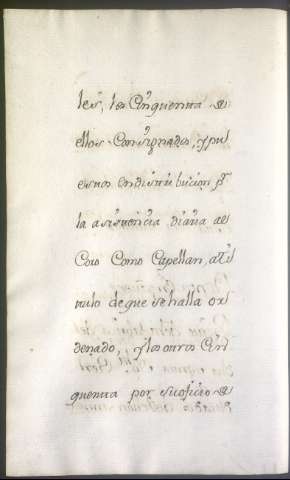 les, los Cinquenta de
ellos Consignados, y pu
estos en distribucion pr
la asistencia diaria ael
Coro Como Capellan, a ti
tulo de que se halla or
denado, y los otros Cin
quenta por su oficio de